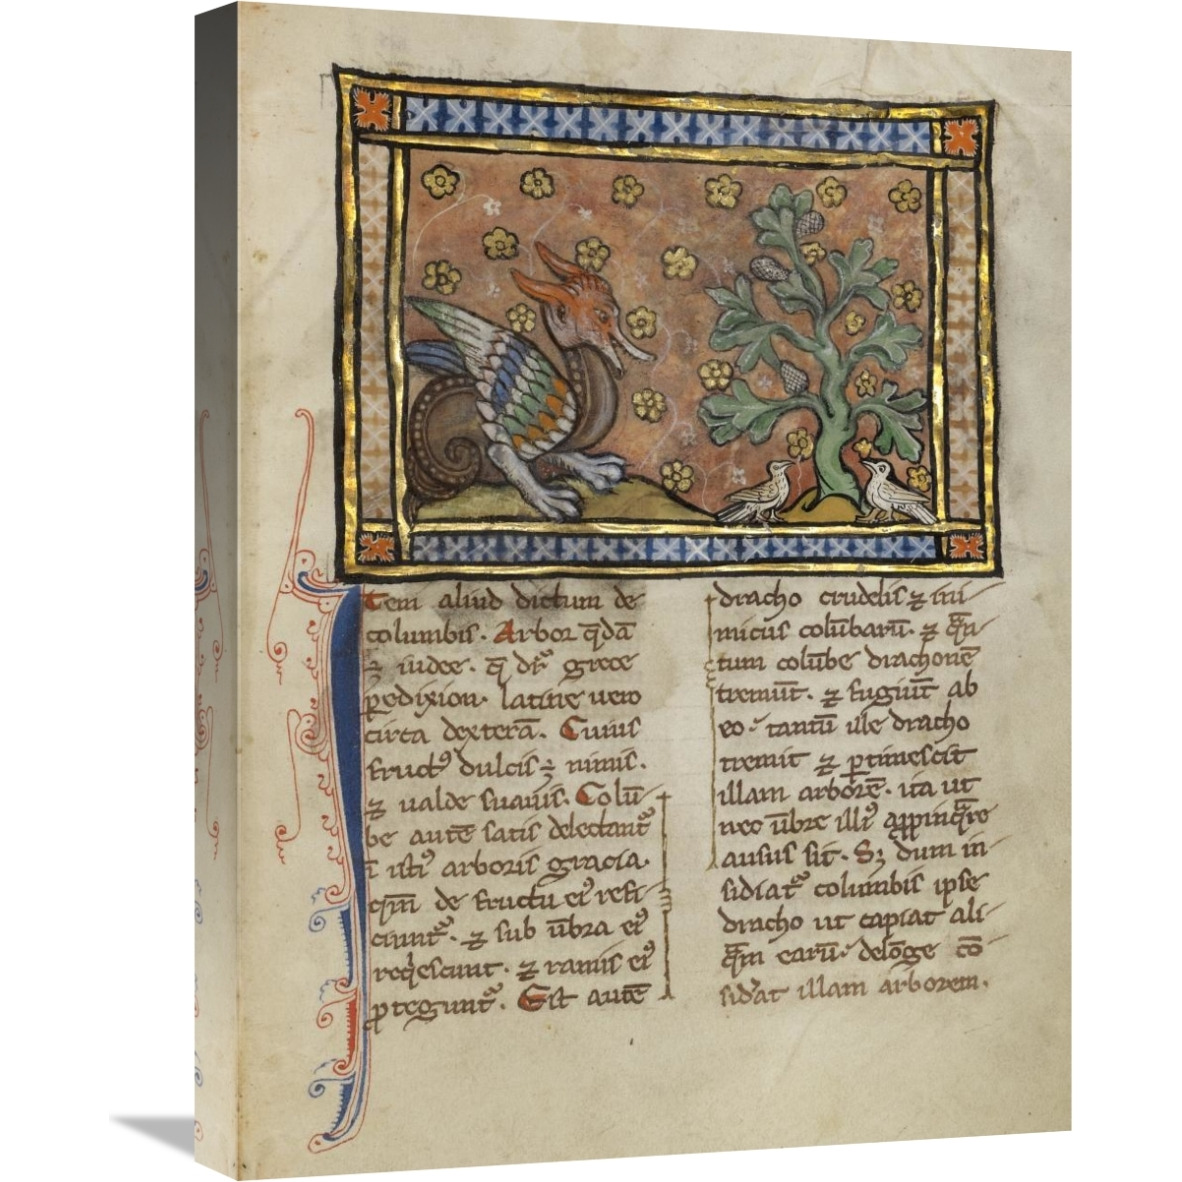 Item aliud dictum de
columbis. Arbor q̄dā
ē iudee. q̄ dr̄ grece
ꝑedixion. latine uero
circa dexterā. Cuius
fructꝰ dulcis ē nimis.
⁊ ualde suauis. Colū-
be autē satis delectantᷣ
ī istiꝰ arboris gracia.
qm̄ de fructu eiꝰ refi-
ciuntᷣ. ⁊ sub ūbra eiꝰ
reqͥescunt. ⁊ ramis eiꝰ
ꝓteguntᷣ. Est autē
dracho crudelis ⁊ ini-
micus colūbarū. ⁊ qͣn-
tum colūbe drachonē
tremūt. ⁊ fugiūt ab
eo. tantū ille dracho
tremit ⁊ ꝑtimescit
illam arborē. ita ut
nec ūbre illiꝰ apͥinqͣre
ausus sit. Sꝫ dum in-
sidiatᷣ columbis ipse
dracho ut capiat ali-
qͣm earū. delōge cō-
sid̓at illam arborem.